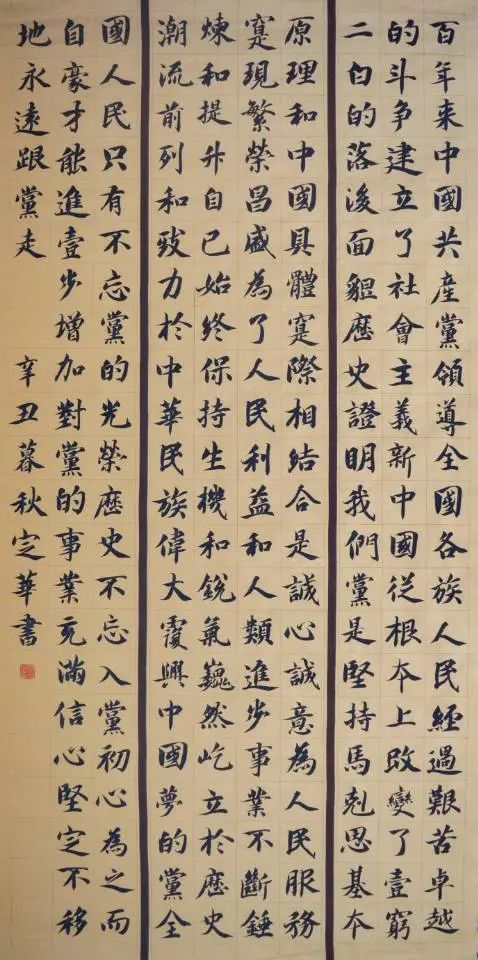 百年来中國共產黨領導全國各族人民經過艱苦卓越
的斗争建立了社會主義新中國從根本上改變了壹窮
二白的落後面貌歷史證明我們黨是堅持馬剋思基本
原理和中國具體寔際相結合是誠心誠意為人民服務
寔現繁榮昌盛為了人民利益和人類進步事業不斷錘
煉和提升自己始終保持生機和銳氣巍然屹立於歷史
潮流前列和致力於中華民族偉大覆興中國夢的黨全
國人民只有不忘黨的光榮歷史不忘入黨初心為之而
自豪才能進壹步增加對黨的事業充滿信心堅定不移
地永遠跟黨走 辛丑暮秋定華書